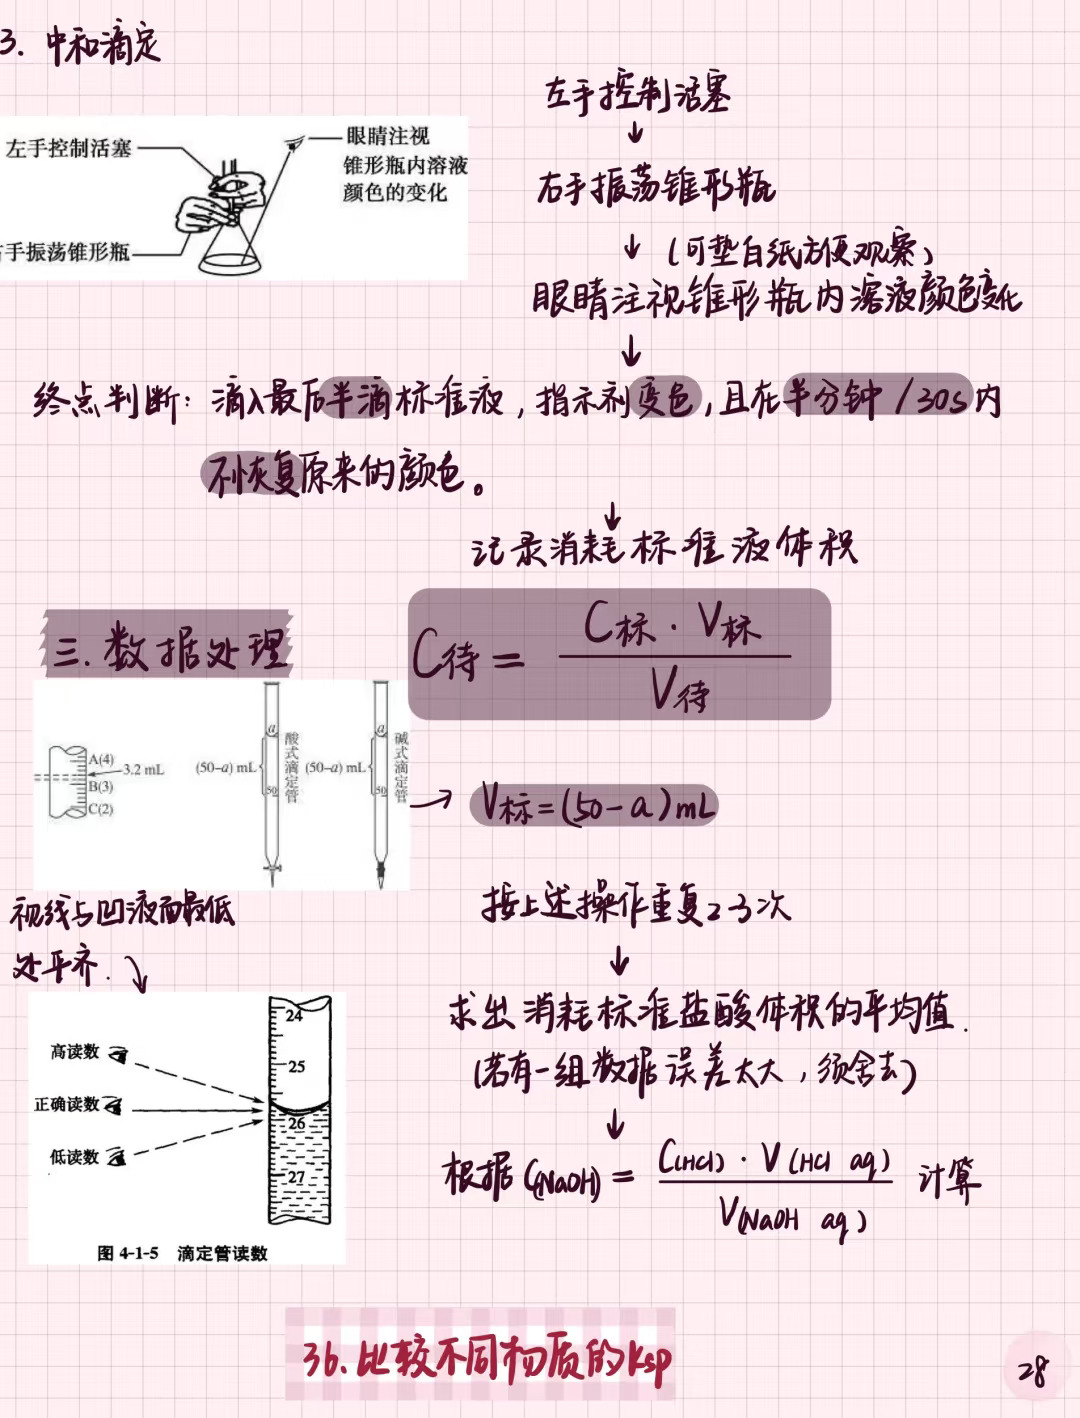 3. 中和滴定
左手控制活塞
↓
右手振荡锥形瓶
↓ (可垫白纸方便观察)
眼睛注视锥形瓶内溶液颜色变化
↓
左手控制活塞
眼睛注视
锥形瓶内溶液
颜色的变化
手振荡锥形瓶
终点判断: 滴入最后半滴标准液, 指示剂变色, 且在半分钟/30s内
不恢复原来的颜色。
↓
记录消耗标准液体积
三. 数据处理
C待 = C标 · V标 / V待
A(4)
3.2 mL
B(3)
C(2)
(50–a) mL
a
50
酸式滴定管
(50–a) mL
a
50
碱式滴定管
→ V标=(50-a)mL
视线与凹液面最低
处平齐.
按上述操作重复2-3次
↓
求出消耗标准盐酸体积的平均值.
(若有一组数据误差太大, 须舍去)
↓
根据 C(NaOH) = C(HCl) · V(HCl aq) / V(NaOH aq) 计算
高读数
正确读数
低读数
24
25
26
27
图 4-1-5 滴定管读数
36. 比较不同物质的Ksp
28